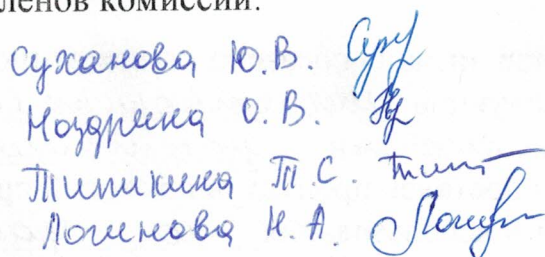 ленов комиссии:
Суханова Ю.В.
Ноздрина О.В.
Типикина Т С.
Логинова Н.А.